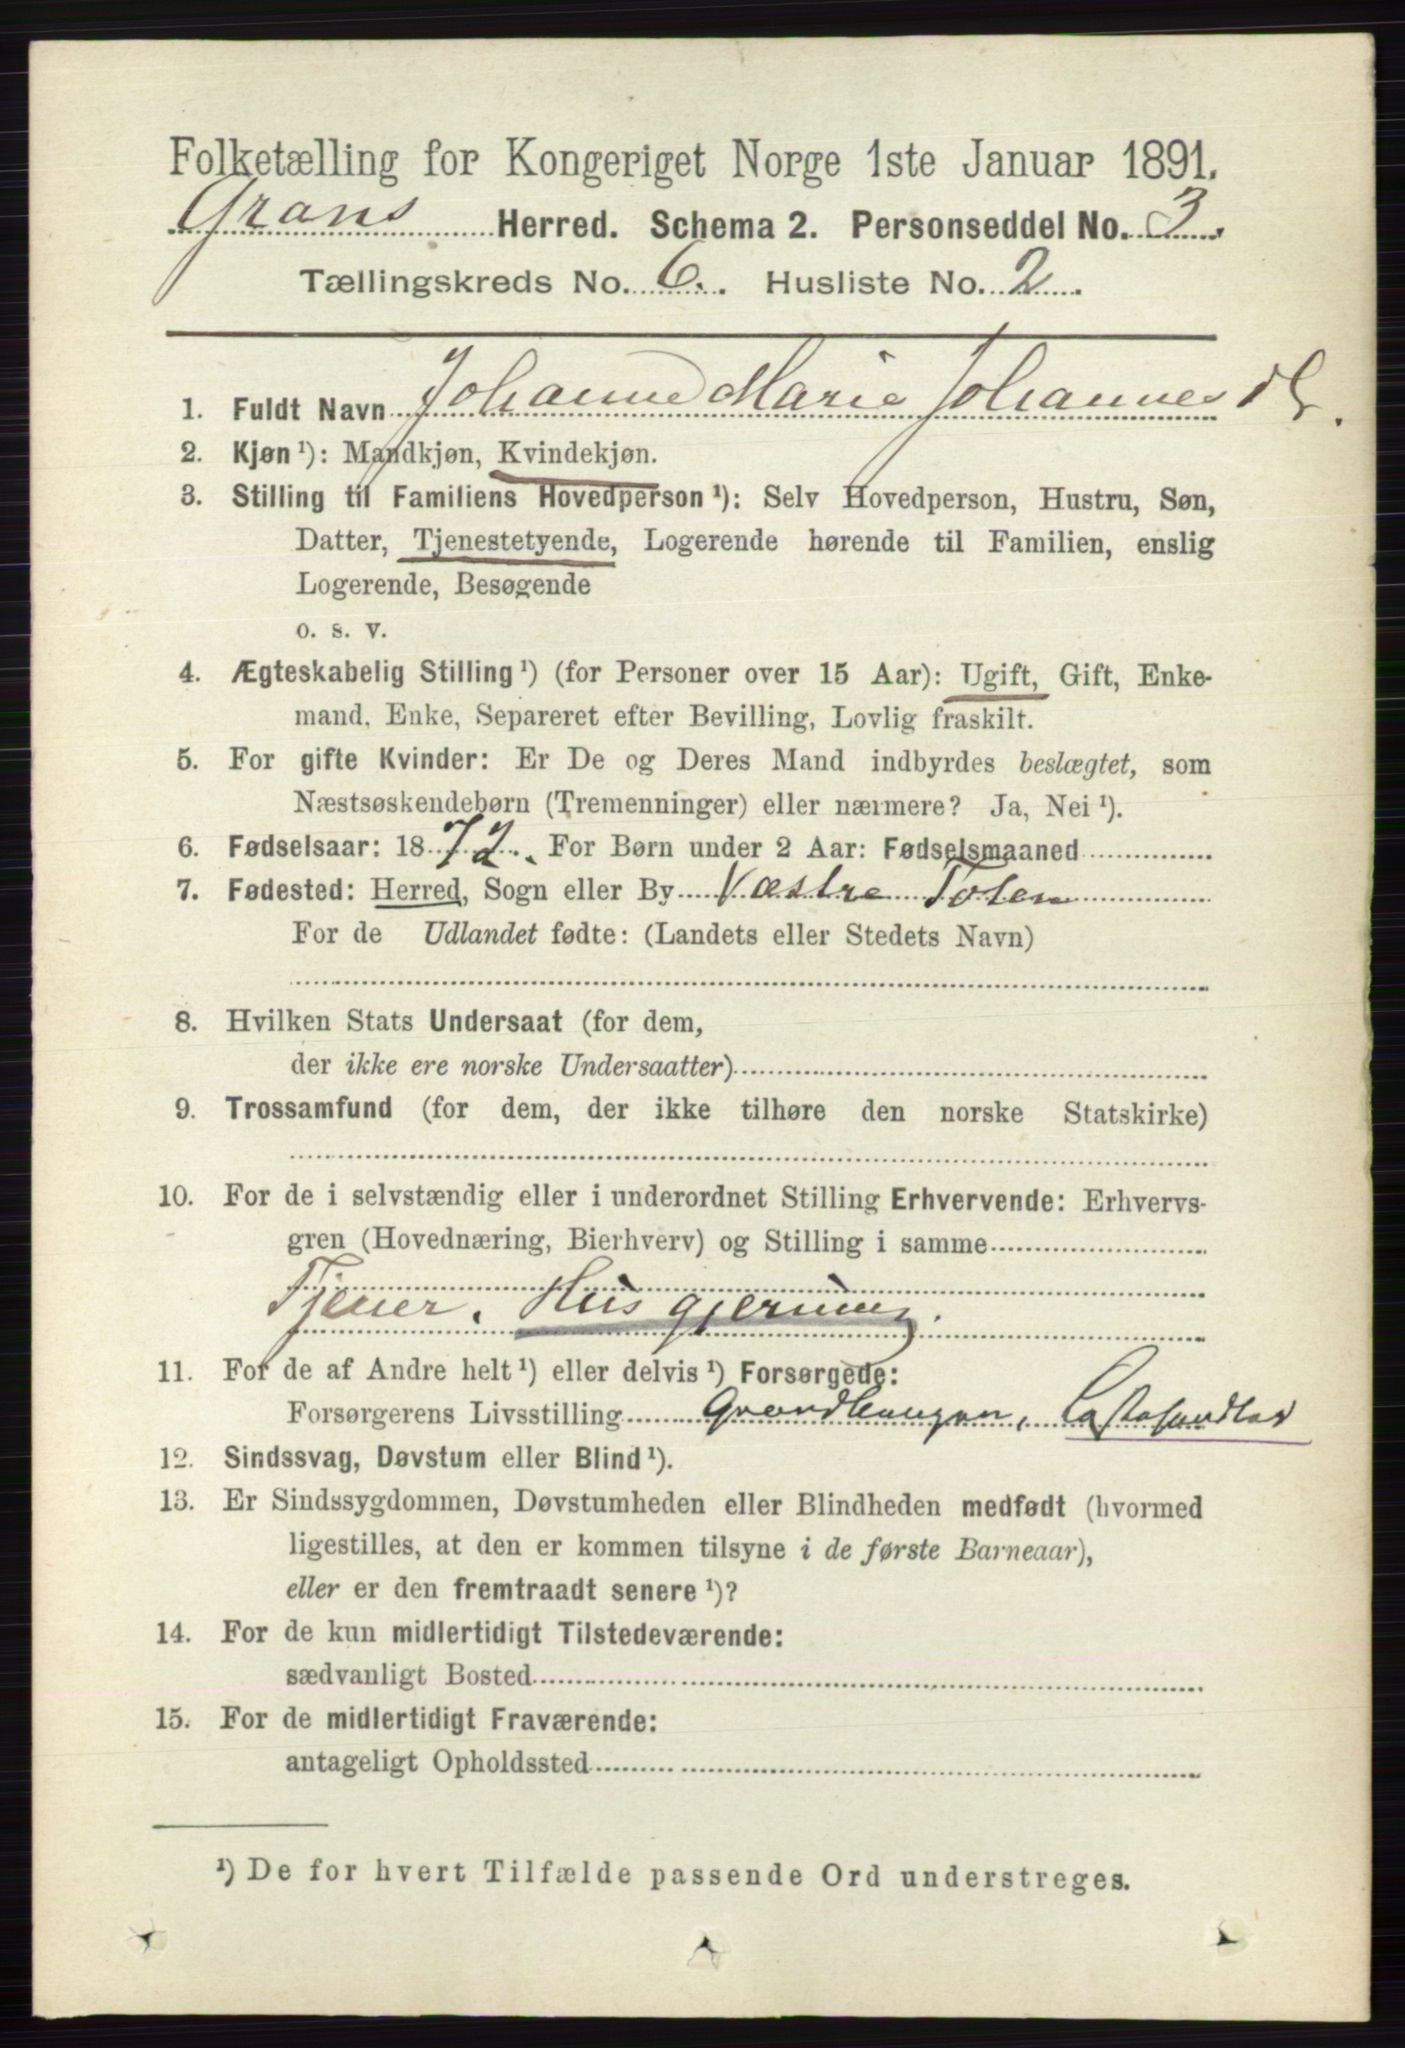 Folketælling for Kongeriget Norge 1ste Januar 1891.
Grans Herred. Schema 2. Personseddel No. 3.
Tællingskreds No. 6. Husliste No. 2
1. Fuldt Navn Johanne Marie Johannesdt.
2. Kjøn ¹): Mandkjøn, Kvindekjøn.
3. Stilling til Familiens Hovedperson ¹): Selv Hovedperson, Hustru, Søn,
Datter, Tjenestetyende, Logerende hørende til Familien, enslig
Logerende, Besøgende
o. s. v.
4. Ægteskabelig Stilling ¹) (for Personer over 15 Aar): Ugift, Gift, Enke-
mand, Enke, Separeret efter Bevilling, Lovlig fraskilt.
5. For gifte Kvinder: Er De og Deres Mand indbyrdes beslægtet, som
Næstsøskendebørn (Tremenninger) eller nærmere? Ja, Nei ¹).
6. Fødselsaar: 1872. For Børn under 2 Aar: Fødselsmaaned
7. Fødested: Herred, Sogn eller By Væstre Toten
For de Udlandet fødte: (Landets eller Stedets Navn)
8. Hvilken Stats Undersaat (for dem,
der ikke ere norske Undersaatter)
9. Trossamfund (for dem, der ikke tilhøre den norske Statskirke)
10. For de i selvstændig eller i underordnet Stilling Erhvervende: Erhvervs-
gren (Hovednæring, Bierhverv) og Stilling i samme
Tjener. Husgjerning.
11. For de af Andre helt ¹) eller delvis ¹) Forsørgede:
Forsørgerens Livsstilling
12. Sindssvag, Døvstum eller Blind ¹).
13. Er Sindssygdommen, Døvstumheden eller Blindheden medfødt (hvormed
ligestilles, at den er kommen tilsyne i de første Barneaar),
eller er den fremtraadt senere ¹)?
14. For de kun midlertidigt Tilstedeværende:
sædvanligt Bosted
15. For de midlertidigt Fraværende:
antageligt Opholdssted
¹) De for hvert Tilfælde passende Ord understreges.